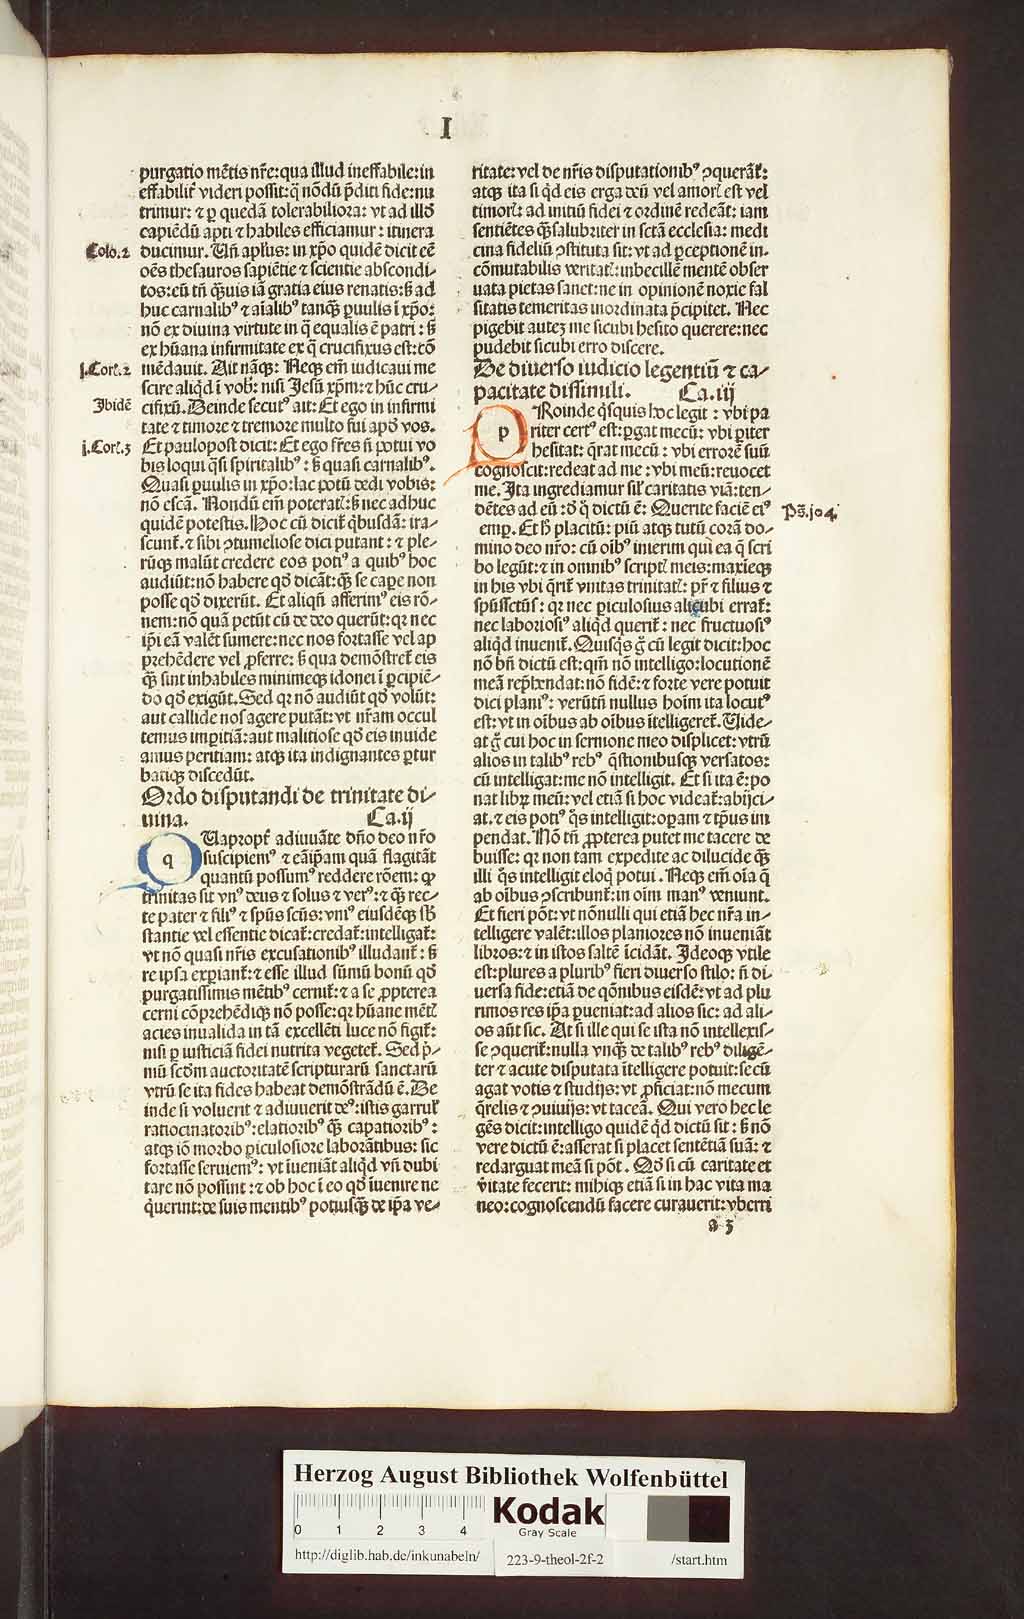 I
purgatio mētis nr̄e: qua illud ineffabile: in
effabilit̛ videri possit: q̄ nōdū p̄diti fide: nu
trimur: ⁊ ꝑ quedā tolerabiliora: vt ad illd̛
capiēdū apti ⁊ habiles efficiamur: itinera
Colo.2
ducimur. Un̄ apl̛us: in xp̄o quidē dicit eē
oēs thesauros sapiētie ⁊ scientie abscondi-
tos: eū tn̄ q̄̃uis iā gratia eius renatis: ß ad
huc carnalibꝰ ⁊ aīalibꝰ tanq̄̃ ꝑuulis ī xp̄o:
nō ex diuina virtute in q̄ equalis ē patri: ß
ex hūana infirmitate ex q̄ crucifixus est: cō
j.Cort̛.2
mēdauit. Ait nāqꝫ. Neqꝫ em̄ iudicaui me
scire aliqd̛ ī vob̛: nisi Jesū xp̄m: ⁊ hūc cru-
Ibidē
cifixū. Deinde secutꝰ ait: Et ego in infirmi
tate ⁊ timore ⁊ tremore multo fui apd̛ vos.
j.Cort̛.3
Et paulopost dicit: Et ego fr̄es n̄ potui vo
bis loqui q̄si spiritalibꝰ: ß quasi carnalibꝰ.
Quasi ꝑuulis in xp̄o: lac potū dedi vobis:
nō escā. Nondū em̄ poterat̛: ß nec adhuc
quidē potestis. Hoc cū dicit̛ q̇busdā: ira-
scunt̛. ⁊ sibi ꝯtumeliose dici putant: ⁊ ple-
rūqꝫ malūt credere eos potiꝰ a quibꝰ hoc
audiūt: nō habere qd̛ dicāt: q̄̃ se caꝑe non
posse qd̛ dixerūt. Et aliqn̄ afferimꝰ eis rō-
nem: nō quā petūt cū de deo querūt: qꝛ nec
ip̄i eā valēt sumere: nec nos fortasse vel ap
p̄hēdere vel ꝓferre: ß qua demōstret̛ eis
q̄̃ sint inhabiles minimeqꝫ idonei ī ꝑcipiē-
do qd̛ exigūt. Sed qꝛ nō audiūt qd̛ volūt:
aut callide nos agere putāt: vt nr̄am occul
temus imꝑitiā: aut malitiose qd̛ eis inuide
amus peritiam: atqꝫ ita indignantes ꝑtur
batiqꝫ discedūt.
Ordo disputandi de trinitate di-
uina. Ca.ij
q
Uapropt̛ adiuuāte dn̄o deo nr̄o
suscipiemꝰ ⁊ eāip̄am quā flagitāt
quantū possumꝰ reddere rōem: qꝫ
trinitas sit vnꝰ deus ⁊ solus ⁊ verꝰ: ⁊ q̄̃ rec-
te pater ⁊ filiꝰ ⁊ sp̄us scūs: vniꝰ eiusdēqꝫ sb̄
stantie vel essentie dicat̛: credat̛: intelligat̛:
vt nō quasi nr̄is excusationibꝰ illudant̛: ß
re ipsa exꝑiant̛: ⁊ esse illud sūmū bonū qd̛
purgatissimis mētibꝰ cernit̛: ⁊ a se ꝓpterea
cerni cōprehēdiqꝫ nō posse: qꝛ hūane mēt̛
acies inualida in tā excellēti luce nō figit̛:
nisi ꝑ iusticiā fidei nutrita vegetet̛. Sed p̄-
mū scd̛m auctoritatē scripturarū sanctarū
vtrū se ita fides habeat demōstrādū ē. De
inde si voluerit ⁊ adiuuerit deꝰ: istis garrul̛
ratiocinatoribꝰ: elatioribꝰ q̄̃ capatioribꝰ:
atqꝫ iō morbo ꝑiculosiore laborātibus: sic
fortasse seruiemꝰ: vt īueniāt aliqd̛ vn̄ dubi
tare nō possint: ⁊ ob hoc ī eo qd̛ īuenire ne
q̇uerint: de suis mentibꝰ potiusq̄̃ de ip̄a ve-
ritate: vel de nr̄is disputationibꝰ ꝯquerāt̛:
atqꝫ ita si qd̛ eis erga deū vel amor̛ est vel
timor̛: ad initiū fidei ⁊ ordinē redeāt: iam
sentiētes q̄̃ salubriter in sctā ecclesia: medi
cina fideliū ꝯstituta sit: vt ad ꝑceptionē in-
cōmutabilis veritat̛: inbecillē mentē obser
uata pietas sanet: ne in opinionē noxie fal
sitatis temeritas inordinata p̄cipitet. Nec
pigebit auteꝫ me sicubi hesito querere: nec
pudebit sicubi erro discere.
De diuerso iudicio legentiū ⁊ ca-
pacitate dissimili. Ca.iij
p
Roinde q̇squis hoc legit: vbi pa
riter certꝰ est: ꝑgat mecū: vbi ꝑiter
hesitat: q̄rat mecū: vbi errorē suū
cognoscit: redeat ad me: vbi meū: reuocet
me. Ita ingrediamur sil̛ caritatis viā: ten-
Pṡ.104.
dētes ad eū: d̛ q̇ dictū ē: Querite faciē eiꝰ
semꝑ. Et h̛ placitū: piū atqꝫ tutū corā do-
mino deo nr̄o: cū oībꝰ interim qui ea q̄ scri
bo legūt: ⁊ in omnibꝰ script̛ meis: maxieqꝫ
in his vbi q̄rit̛ vnitas trinitat̛: pr̄ ⁊ filius ⁊
sp̄ussctūs: qꝛ nec ꝑiculosius alicubi errat̛:
nec laboriosiꝰ aliqd̛ querit̛: nec fructuosiꝰ
aliqd̛ inuenit̛. Quisq̇s g̛ cū legit dicit: hoc
nō bn̄ dictū est: qm̄ nō intelligo: locutionē
meā rep̄hendat: nō fidē: ⁊ forte vere potuit
dici planiꝰ: verūtn̄ nullus hoīm ita locutꝰ
est: vt in oībus ab oībus ītelligeret̛. Uide-
at g̛ cui hoc in sermone meo displicet: vtrū
alios in talibꝰ rebꝰ q̄stionibusqꝫ versatos:
cū intelligat: me nō intelligit. Et si ita ē: po
nat librꝫ meū: vel etiā si hoc videat̛: abijci-
at. ⁊ eis potiꝰ q̇s intelligit: oꝑam ⁊ tp̄us im
pendat. Nō tn̄ ꝓpterea putet me tacere de
buisse: qꝛ non tam expedite ac dilucide q̄̃
illi q̇s intelligit eloq̇ potui. Neqꝫ em̄ oīa q̄
ab oībus ꝯscribunt̛: in oīm manꝰ veniunt.
Et fieri pōt: vt nōnulli qui etiā hec nr̄a in-
telligere valēt: illos planiores nō inueniāt
libros: ⁊ in istos saltē īcidāt. Ideoqꝫ vtile
est: plures a pluribꝰ fieri diuerso stilo: n̄ di-
uersa fide: etiā de q̄onibus eisdē: vt ad plu
rimos res ip̄a ꝑueniat: ad alios sic: ad ali-
os aūt sic. At si ille qui se ista nō intellexis-
se ꝯquerit̛: nulla vnq̄̃ de talibꝰ rebꝰ diligē-
ter ⁊ acute disputata ītelligere potuit: secū
agat votis ⁊ studijs: vt ꝓficiat: nō mecum
q̄relis ⁊ ꝯuiuijs: vt taceā. Qui vero hec le
gēs dicit: intelligo quidē qd̛ dictū sit: ß nō
vere dictū ē: asserat si placet sentētiā suā: ⁊
redarguat meā si pōt. Qd̛ si cū caritate et
v̄itate fecerit: mihiqꝫ etiā si in hac vita ma
neo: cognoscendū facere curauerit: vberri
a 3
Herzog August Bibliothek Wolfenbüttel
0 1 2 3 4
Kodak
Gray Scale
http://diglib.hab.de/inkunabeln/
223-9-theol-2f-2
/start.htm